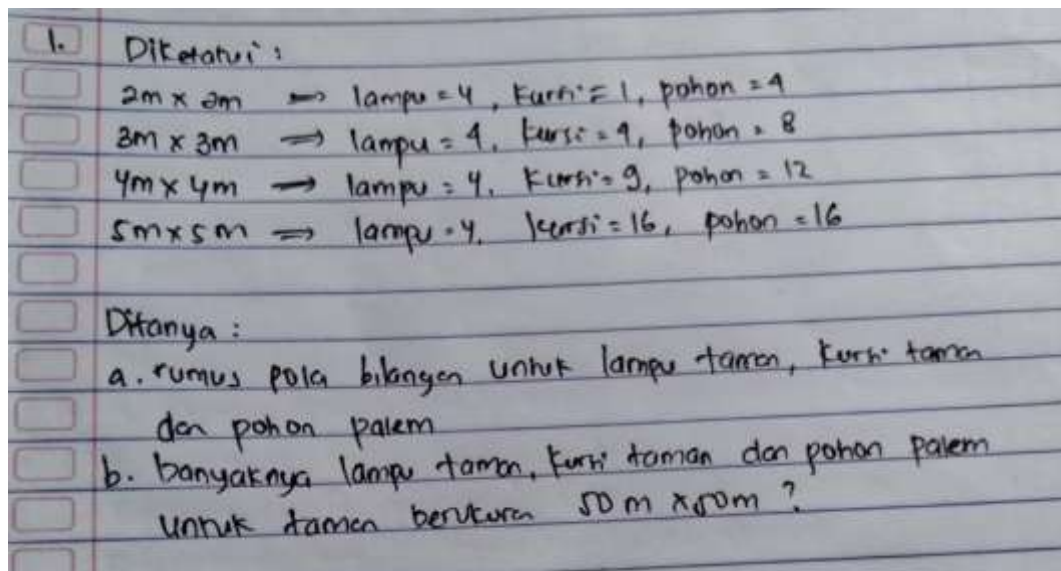 1. Diketahui :
2m x 2m => lampu = 4, Kursi = 1, pohon = 4
3m x 3m => lampu = 4, kursi = 4, pohon = 8
4m x 4m => lampu = 4, Kursi = 9, pohon = 12
5m x 5m => lampu = 4, kursi = 16, pohon = 16
Ditanya :
a. rumus pola bilangan untuk lampu taman, kursi taman
dan pohon palem
b. banyaknya lampu taman, kursi taman dan pohon palem
untuk taman berukuran 50 m x 50m ?